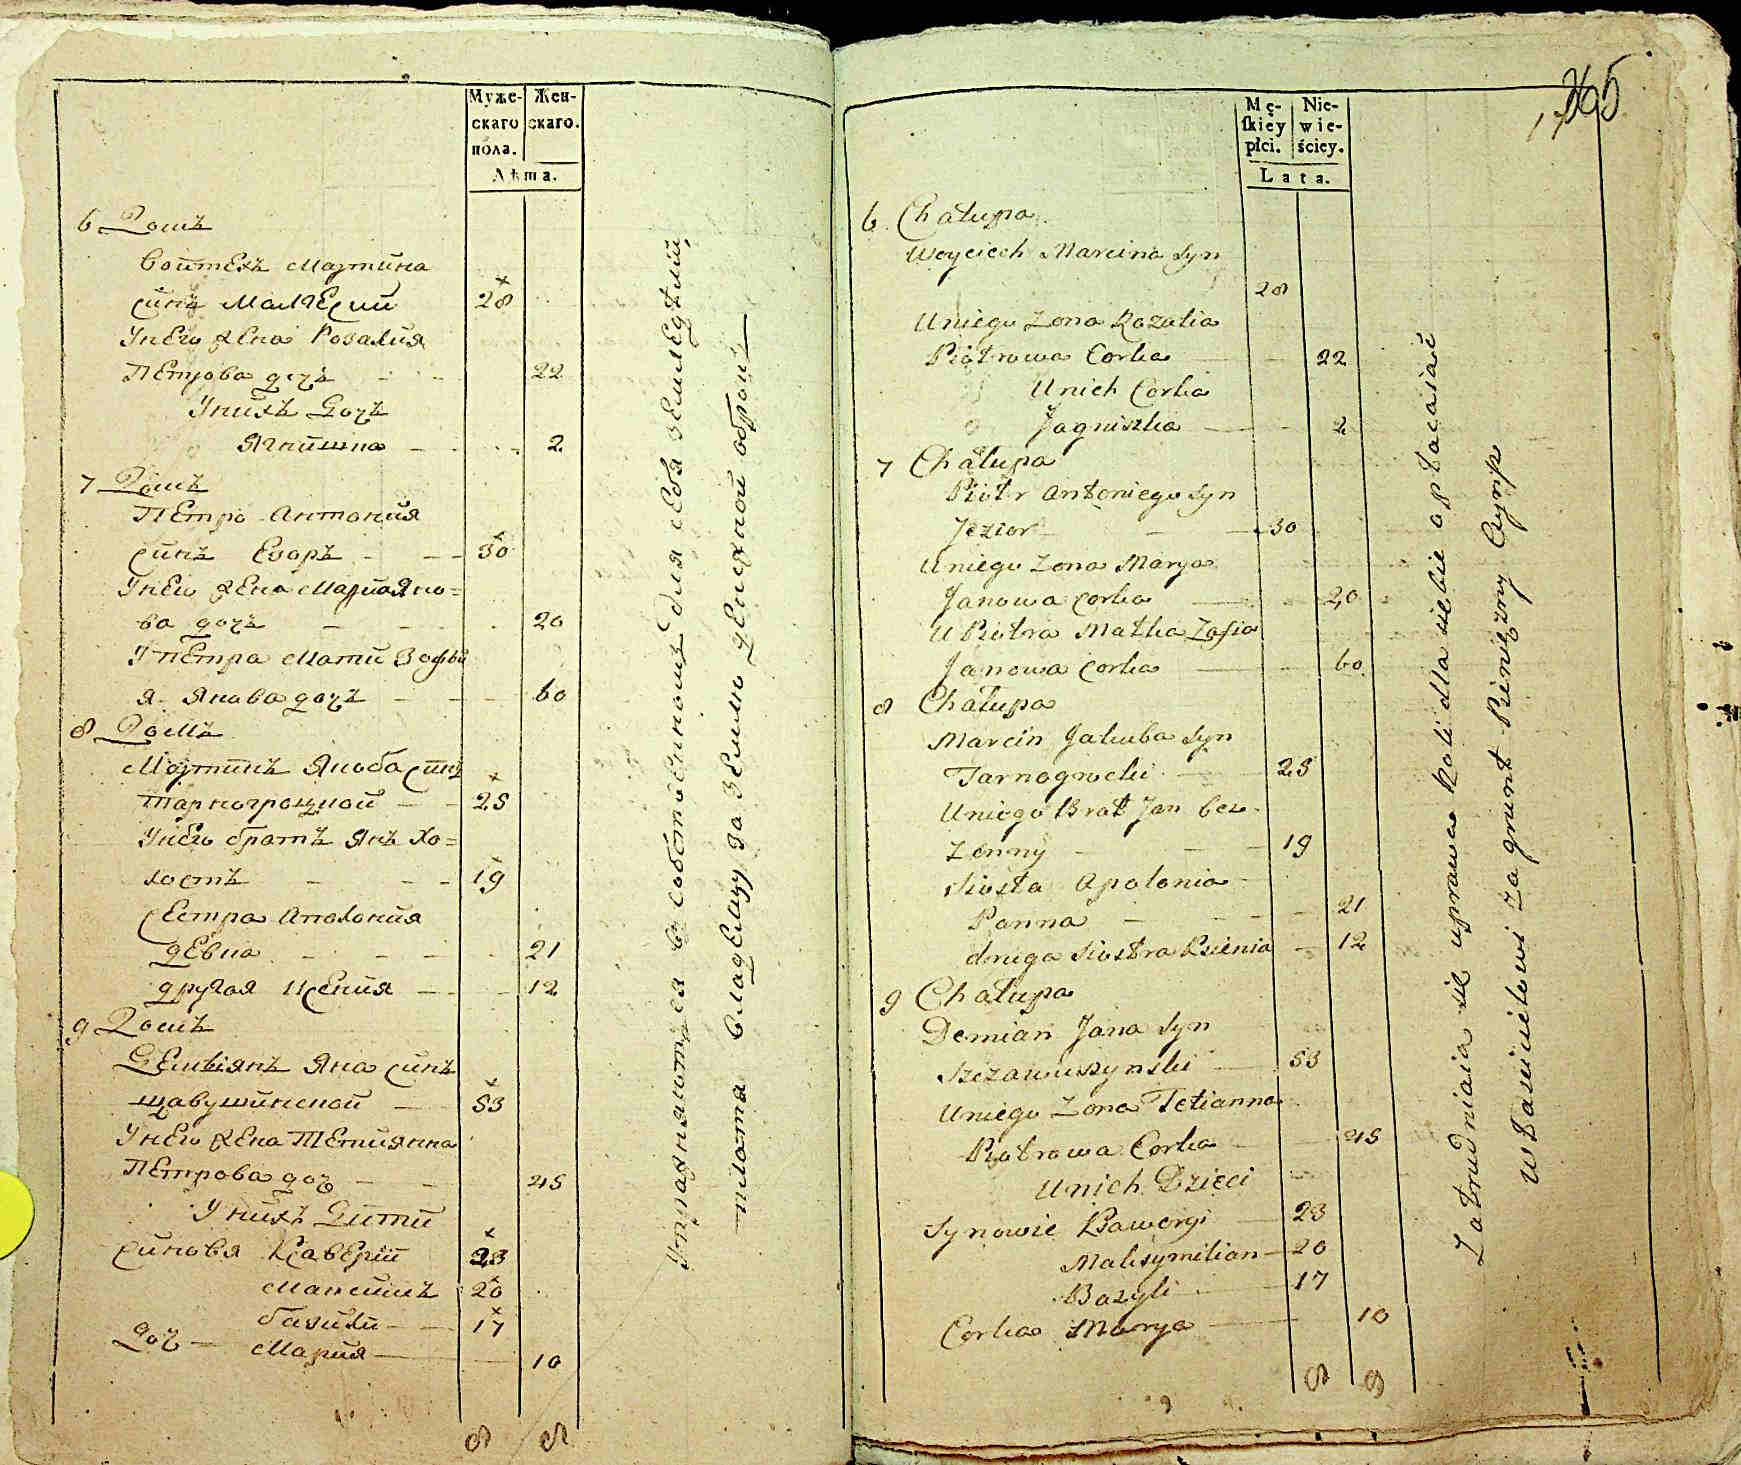 Муже- Жен-
скаго скаго.
пола.
Лѣта.
6 Домъ
Войтехъ Мартина
синъ Малчесий 28
У него жена Розалия
Петрова дочь 22
У нихъ Дочь
Ягнишка 2
7 Домъ
Петро Антония
Синъ Езоръ 30
У него жена Мария Яно=
ва дочь 20
У Петра мати Зофи
я Янова дочь 60
8 Домъ
Мартинъ Якоба синъ
Тарногроцкой 25
У него братъ Янъ хо=
лостъ 19
Сестра Аполония
девка 21
другая Ксения 12
9 Домъ
Демьянъ Яна Синъ
Щавушинской 53
У него жена Тетиянна
Петрова доч 45
У нихъ Дити
Синовя Ксаверий 23
Максимъ 20
базили 17
Доч Мария 10
8 9
Упражняются в собственномъ для себя земледелий,
плотя владельцу за землю денежной оброкъ
365
17
Mę- Nie-
skiéy wie-
płci. ściey.
Lata.
6 Chałupa
Woyciech Marcina Syn
28
U niego Zona Rozalia
Piotrowa Corka 22
U nich Corka
Jagniszka 2
7 Chałupa
Piotr Antoniego Syn
Jezior 30
U niego Zona Marya
Janowa Corka 20
U Piotra Matka Zofia
Janowa Corka 60
8 Chałupa
Marcin Jakuba Syn
Tarnogrocki 25
U niego Brat Jan bez-
zenny 19
Siosta Apolonia
Panna 21
druga Siostra Ksienia 12
9 Chałupa
Demian Jana Syn
Szczawuszynski 53
U niego Zona Tetianna
Piotrowa Corka 45
U nich Dzieci
Synowie Xawery 23
Maksymilian 20
Bazyli 17
Corka Marya 10
8 9
Zatrudniaia się uprawa Roli dla siebie opłacaiąc
właścicielowi za grunt Pieniężny Czynsz